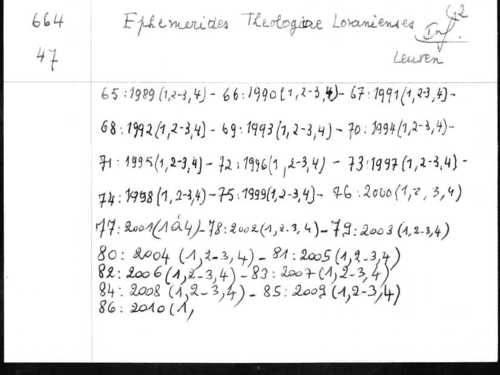 664 Ephemerides Theologicae Lovanienses
47 Leuven
65:1989(1,2-3,4) - 66:1990(1,2-3,4) - 67:1991(1,2-3,4) -
68:1992(1,2-3,4) - 69:1993(1,2-3,4) - 70:1994(1,2-3,4) -
71:1995(1,2-3,4) - 72:1996(1,2-3,4) - 73:1997(1,2-3,4) -
74:1998(1,2-3,4) - 75:1999(1,2-3,4) - 76:2000(1,2,3,4)
77:2001(1à4) - 78:2002(1,2-3,4) - 79:2003(1,2-3,4)
80:2004(1,2-3,4) - 81:2005(1,2-3,4)
82:2006(1,2-3,4) - 83:2007(1,2-3,4)
84:2008(1,2-3,4) - 85:2009(1,2-3,4)
86:2010(1,